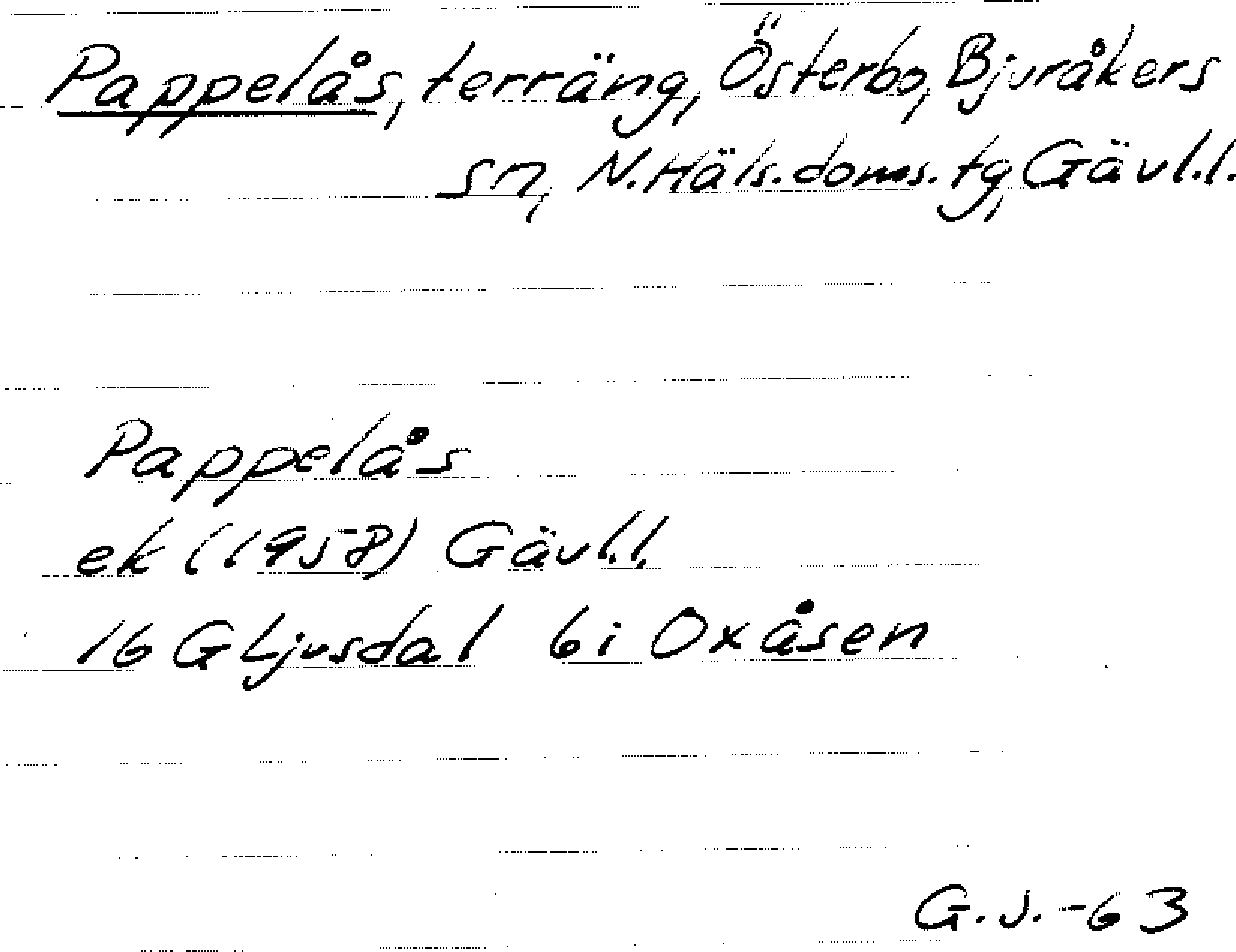 Pappelås, terräng, Österbo, Bjuråkers
sn, N. Häls. doms. tg, Gävl.l.
Pappelås
ek (1958) Gävl.l.
16 G Ljusdal 6i Oxåsen
G.J.-63